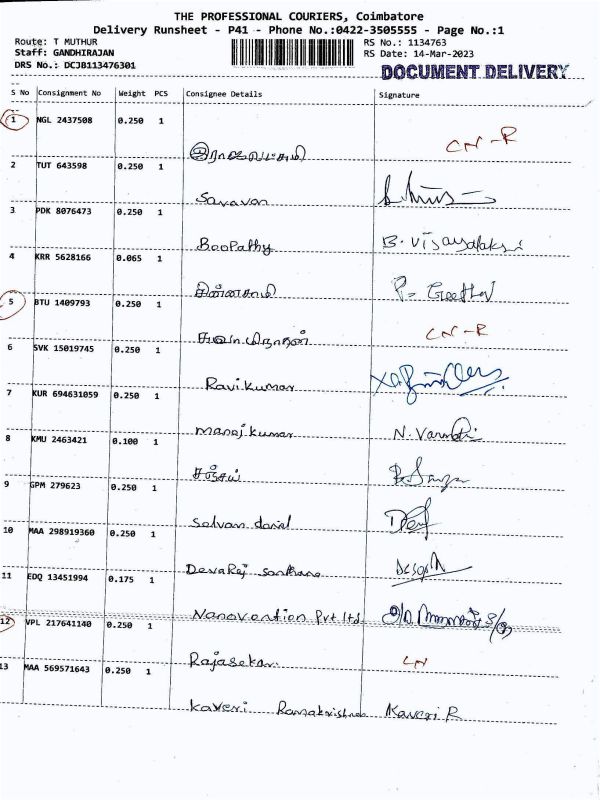 THE PROFESSIONAL COURIERS, Coimbatore
Delivery Runsheet - P41 - Phone No.:0422-3505555 - Page No.:1
Route: T MUTHUR RS No.: 1134763
Staff: GANDHIRAJAN RS Date: 14-Mar-2023
DRS No.: DCJB113476301 DOCUMENT DELIVERY
S No Consignment No Weight PCS Consignee Details Signature
1 NGL 2437508 0.250 1
CN-R
2 TUT 643598 0.250 1
Savavan
3 PDK 8076473 0.250 1
Boopathy B. Vijayalaksi
4 KRR 5628166 0.065 1
சின்னசாமி P- Geetha
5 BTU 1409793 0.250 1
CN-R
6 SVK 15019745 0.250 1
Ravi kumar
7 KUR 694631059 0.250 1
manoj kumar N. Varmathi
8 KMU 2463421 0.100 1
சஞ்சய்
9 GPM 279623 0.250 1
Selvan daniel
10 MAA 298919360 0.250 1
Devaraj santhana
11 EDQ 13451994 0.175 1
Nanovention Pvt ltd
12 VPL 217641140 0.250 1
Rajasekar LN
13 MAA 569571643 0.250 1
Kaveri Ramakrishnan Kaveri R